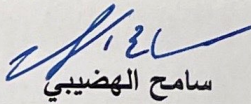 سامح الهضيبي